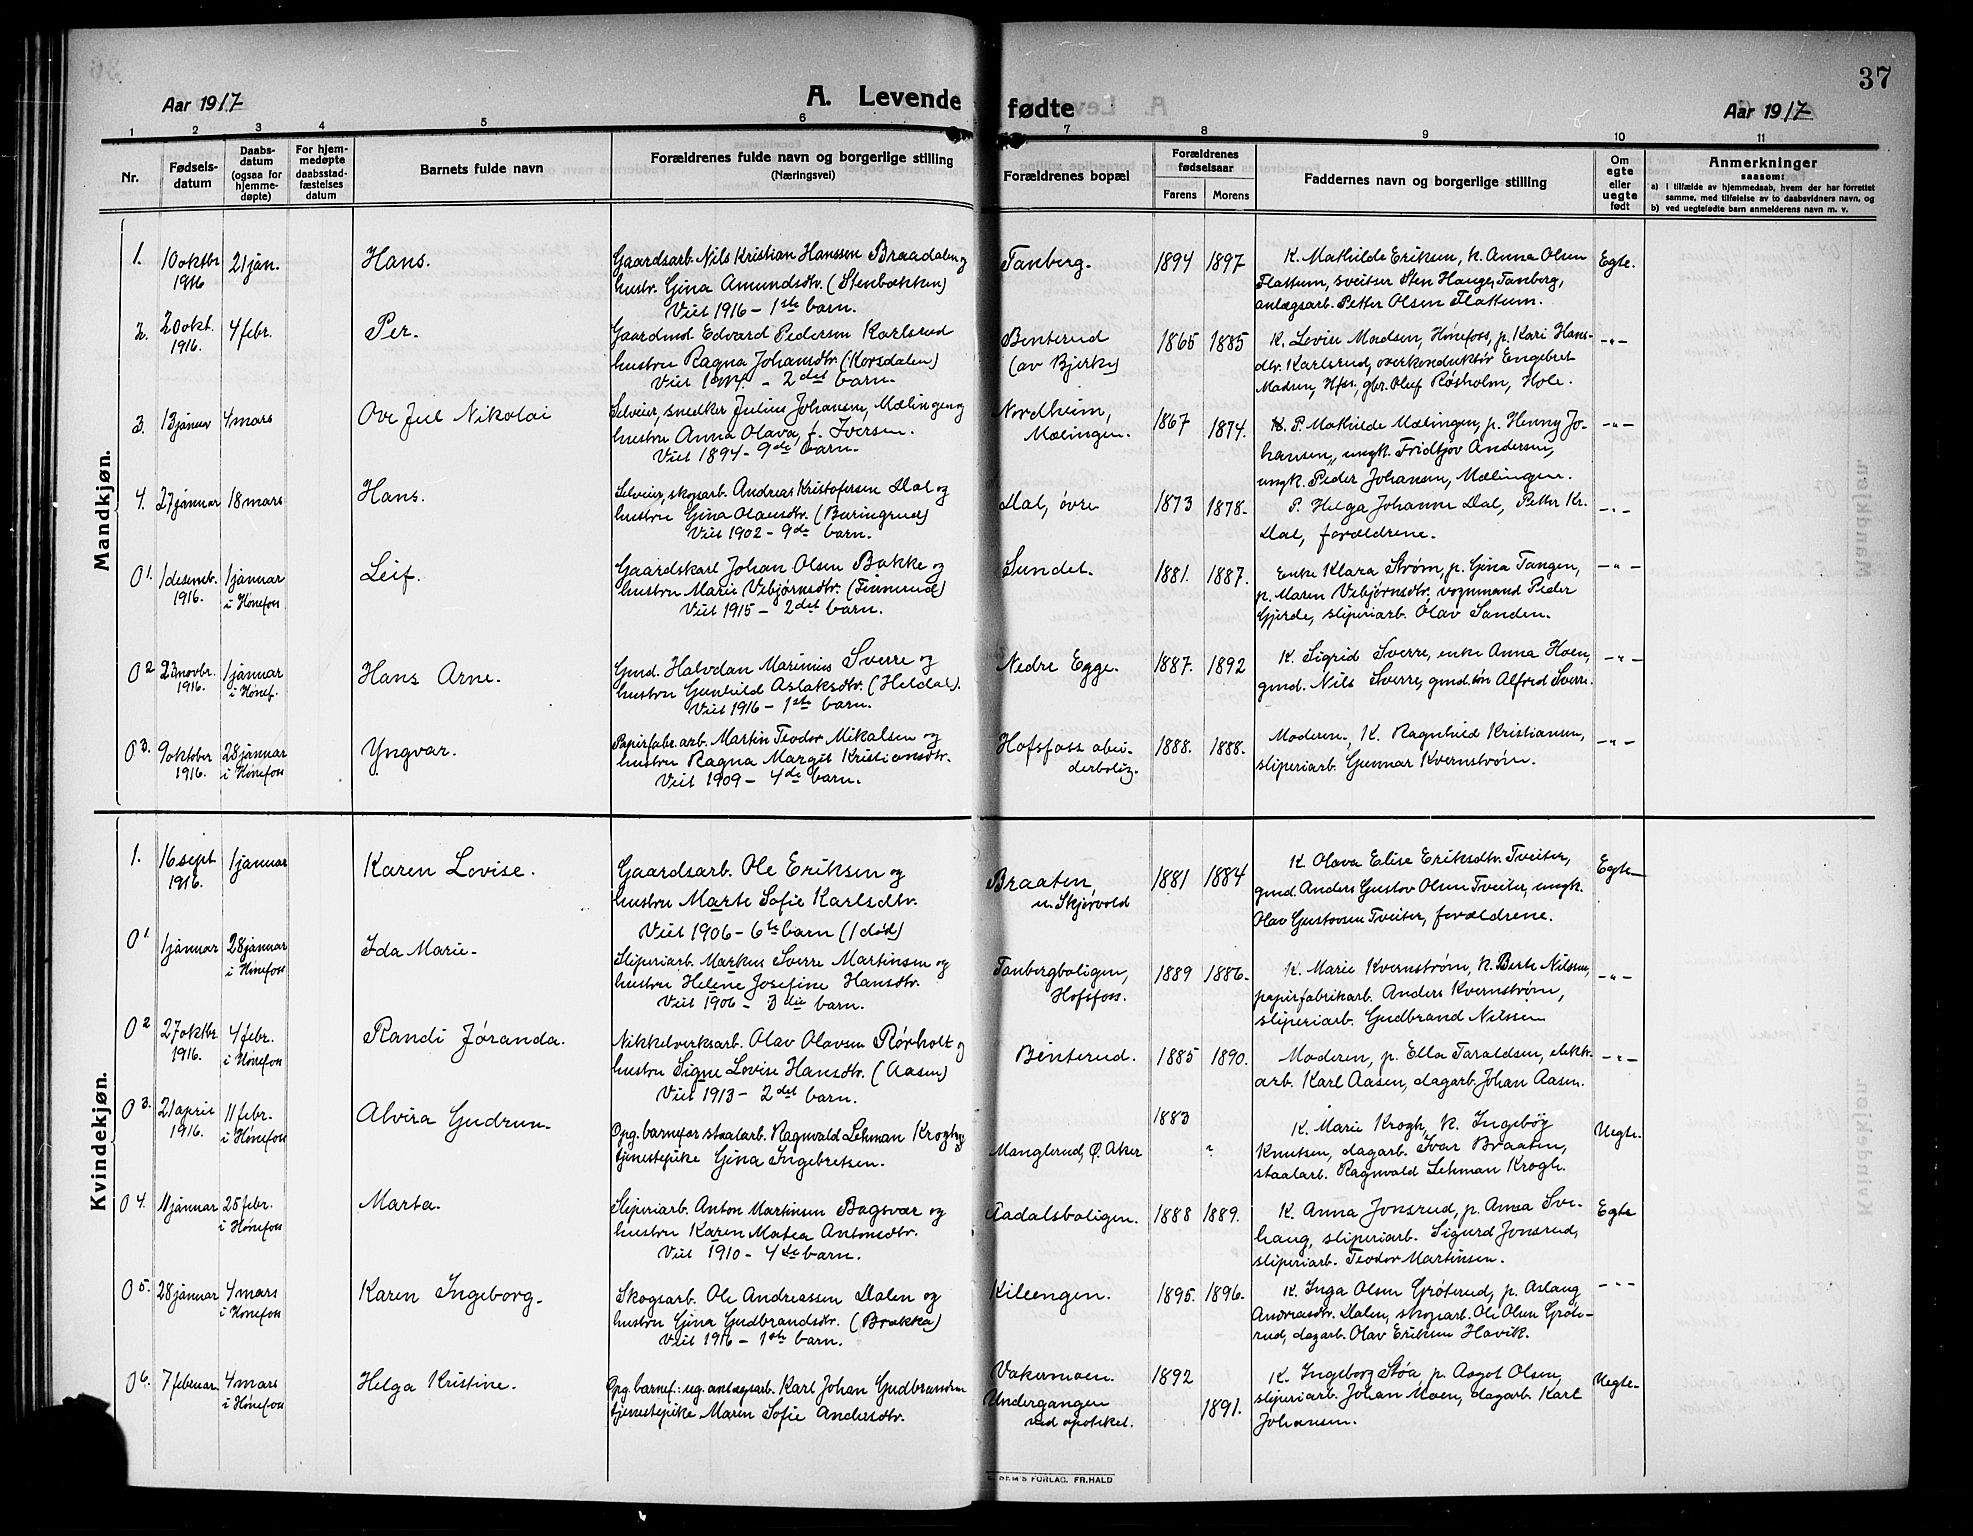 37
Aar 1917
A. Levende fødte
Aar 1917
1 2 3 4 5 6 7 8 9 10 11
Nr.
Fødsels-
datum
Daabs-
datum
(ogsaa for
hjemme-
døpte)
For hjem-
medøpte
daabsstad-
fæstelses
datum
Barnets fulde navn
Forældrenes fulde navn og borgerlige stilling
(Næringsvei)
Forældrenes bopæl
Forældrenes
fødselsaar
Farens Morens
Faddernes navn og borgerlige stilling
Om
egte
eller
uegte
født
Anmerkninger
saasom:
a) i tilfælde av hjemmedaab, hvem der har forrettet
samme, med tilføielse av to daabsvidners navn, og
b) ved uegtefødte barn anmelderens navn m. v.
Mandkjøn.
1. 10 oktbr 21 jan. Hans. Gaardsarb. Nils Kristian Hanssen Braadalen og Tanberg. 1894 1897 K. Mathilde Eriksen, k. Anna Olsen Egte.
1916 hustr. Gina Amundsdtr. (Stenbækken) Flattum, sveitser Sten Hauge, Tanberg,
Viet 1916 - 1ste barn. anlægsarb. Petter Olsen Flattum.
2. 20 okt. 4 febr. Per. Gaardmd. Edvard Pedersen Karlsrud Benterud 1865 1885 K. Lovise Madsen, Hønefoss, p. Kari Hans- -"-
1916. hustru Ragna Johansdtr. (Korsdalen) (av Bjerke) dtr. Karlsrud, overkonduktør Engebret
Viet 1914. - 2det barn. Madsen, Hfss, gbr. Oluf Røsholm, Hole.
3. 13 januar 4 mars Ove Juel Nikolai Selveier, snedker Julius Johansen, Mælingen og Nordheim, 1867 1874. K. P. Mathilde Mælingen, p. Henny Jo- -"-
hustru Anna Olava, f. Iversen. Mælingen. hansen, ungk. Fridtjov Andersen,
Viet 1894 - 9de barn. ungk. Peder Johansen, Mælingen.
4. 27 januar 18 mars Hans. Selveier, skogarb. Andreas Kristofersen Dal og Dal, øvre 1873 1878. P. Helga Johanne Dal, Petter Kr. -"-
hustru Gina Olausdtr. (Buringrud) Dal, forældrene.
Viet 1902 - 9de barn.
01. 1 desemb. 1 januar Leif. Gaardskarl Johan Olsen Bakke og Sundet. 1881. 1887. Enke Klara Strøm, p. Gina Tangen, -"-
1916. i Hønefoss hustru Marie Vebjørnsdtr. (Finnerud) p. Maren Vebjørnsdtr, vognmand Peder
Viet 1915 - 2det barn. Gjerde, sliperiarb. Olav Sanden.
02 23 novbr. 1 januar Hans Arne. Gmd. Halvdan Marinius Sverre og Nedre Egge. 1887. 1892 K. Sigrid Sverre, enke Anna Hoen, -"-
1916. i Hønef. hustru Gunhild Aslaksdtr. (Heldal). gmd. Nils Sverre, gmd.søn Alfred Sverre.
Viet 1916 - 1ste barn.
03. 9 oktober 28 januar Yngvar. Papirfabr.arb. Martin Teodor Mikalsen og Hofsfoss abei- 1888. 1888. Moderen, K. Ragnhild Kristiansen, -"-
1916. i Hønefoss hustru Ragna Margit Kristiansdtr. derbolig. sliperiarb. Gunnar Kvernstrøm.
Viet 1909 - 4de barn.
Kvindekjøn.
1. 16 sept 1 januar Karen Lovise. Gaardsarb. Ole Eriksen og Braaten, 1881 1884 K. Olava Elise Eriksdtr. Tveiter, Egte
1916. hustru Marte Sofie Karlsdtr. u. Skjørvold gmd. Anders Gustav Olsen Tveiter, ungk.
Viet 1906 - 6te barn (1 død) Olav Gustavsen Tveiter, forældrene.
01 1 januar 28 januar Ida Marie. Sliperiarb. Markus Sverre Martinsen og Tanbergboligen, 1889 1886. K. Marie Kvernstrøm, k. Berte Nilssen, -"-
i Hønefoss hustru Helene Josefine Hansdtr. Hofsfoss. papirfabrikarb. Anders Kvernstrøm,
Viet 1906 - 3die barn. sliperiarb. Gudbrand Nilssen
02 27 oktbr. 4 febr. Randi Jøranda. Nikkelverksarb. Olav Olavsen Rørholt og Benterud. 1885 1890. Moderen, p. Ella Taraldsen, elektr. -"-
1916. i Hønefoss hustru Signe Lovise Hansdtr. (Aasen) arb. Karl Aasen, dagarb. Johan Aasen.
Viet 1913 - 2det barn.
03. 21 april 11 febr. Alvira Gudrun. Opg. barnefar staalarb. Ragnvald Lehman Krogh og Manglerud, Ø. Aker 1883 ? K. Marie Krogh, k. Ingebøg Uegte.
1916. i Hønefoss tjenestepike Gina Ingebretsen. Knutsen, dagarb. Ivar Braaten,
staalarb. Ragnvald Lehman Krogh.
04. 11 januar 25 febr. Marta. Sliperiarb. Anton Martinsen Bagsvar og Aadalsboligen. 1888 1889. K. Anna Jonsrud, p. Anna Sve- Egte
i Hønefoss hustru Karen Matea Antonsdtr. haug, sliperiarb. Sigurd Jonsrud,
Viet 1910 - 4de barn. sliperiarb. Teodor Martinsen.
05. 28 januar 4 mars Karen Ingeborg. Skogsarb. Ole Andreassen Dalen og Kileengen. 1895. 1896. K. Inga Olsen Grøterud, p. Aslaug -"-
i Hønefoss hustru Gina Gudbrandsdtr. (Brækka) Andreasdtr. Dalen, skogarb. Ole Olsen Grøte-
Viet 1916 - 1ste barn. rud, dagarb. Olav Eriksen Havik.
06. 7 februar 4 mars Helga Kristine. Opg. barnef: ug. anlægsarb. Karl Johan Gudbrandsen Vakermoen. 1892 K. Ingeborg Støa, p. Aagot Olsen, Uegte
i Hønefoss tjenestepike Maren Sofie Andersdtr. Undergangen 1891. sliperiarb. Johan Moen, dagarb. Karl
ved apoteket. Johansen.
SEM'S FORLAG. FR.HALD